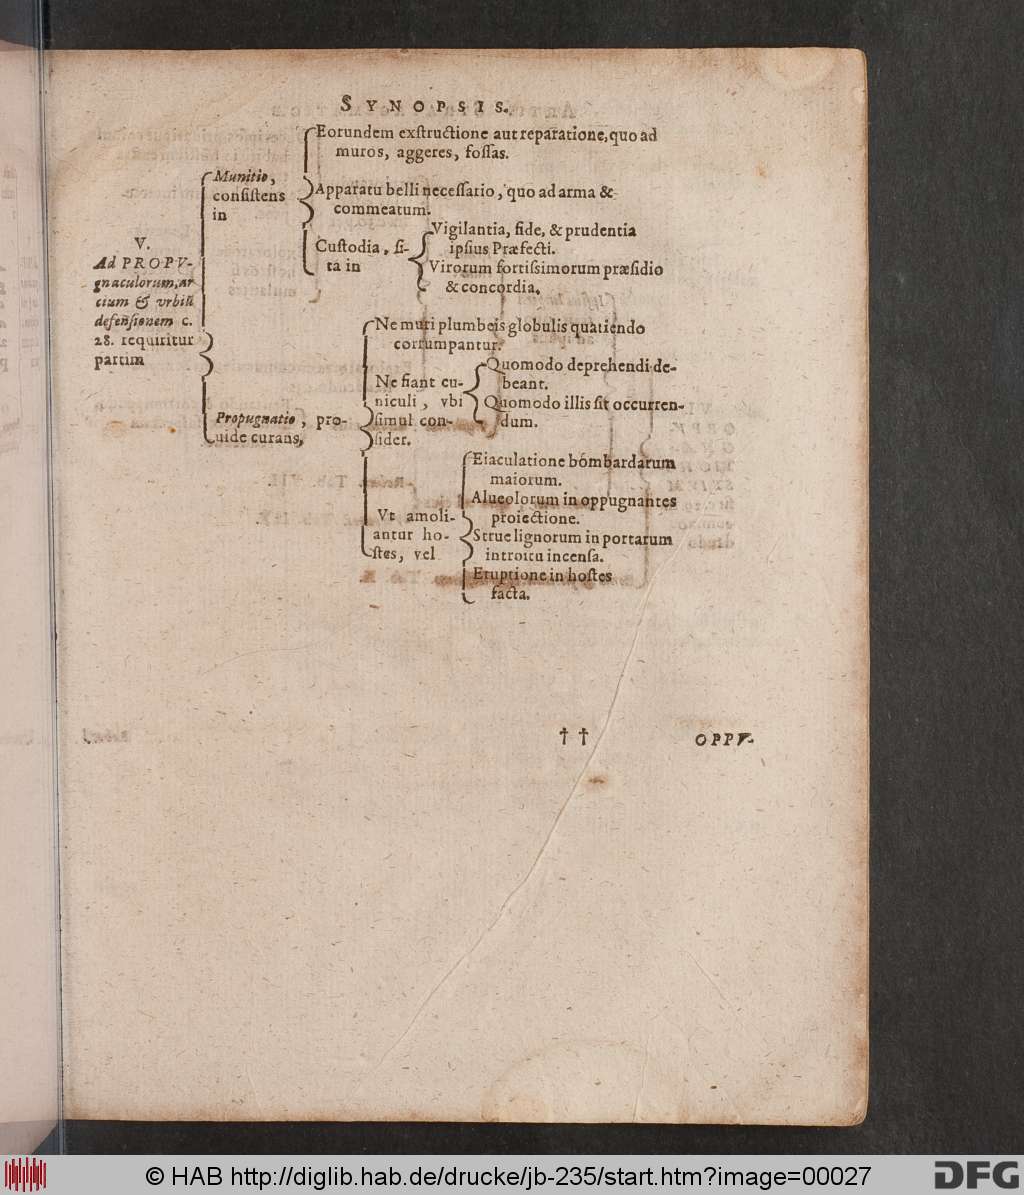 SYNOPSIS.
V.
Ad PROPV-
gnaculorum, ar
cium & vrbiũ
defensionem c.
28. requiritur
partim
Munitio,
consistens
in
Eorundem exstructione aut reparatione, quo ad
muros, aggeres, fossas.
Apparatu belli necessario, quo ad arma &
commeatum.
Custodia, si-
ta in
Vigilantia, fide, & prudentia
ipsius Præfecti.
Virorum fortissimorum præsidio
& concordia.
Propugnatio, pro-
uide curans,
Ne muri plumbeis globulis quatiendo
corrumpantur.
Ne fiant cu-
niculi, vbi
simul con-
sider.
Quomodo deprehendi de-
beant.
Quomodo illis sit occurren-
dum.
Vt amoli-
antur ho-
stes, vel
Eiaculatione bombardarum
maiorum.
Alueolorum in oppugnantes
proiectione.
Strue lignorum in portarum
introitu incensa.
Eruptione in hostes
facta.
†† OPPV-
© HAB http://diglib.hab.de/drucke/jb-235/start.htm?image=00027
DFG